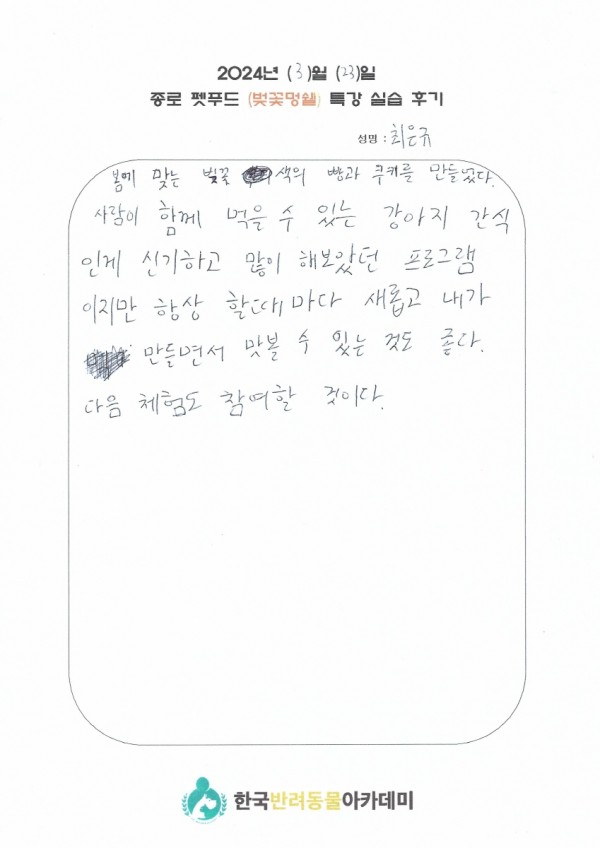 2024년 (3)월 (23)일
종로 펫푸드 (벚꽃멍쉘) 특강 실습 후기
성명 : 최은규
봄에 맞는 벚꽃 색의 빵과 쿠키를 만들었다.
사람이 함께 먹을 수 있는 강아지 간식
인게 신기하고 많이 해보았던 프로그램
이지만 항상 할때마다 새롭고 내가
만들면서 맛볼 수 있는 것도 좋다.
다음 체험도 참여할 것이다.
한국반려동물아카데미